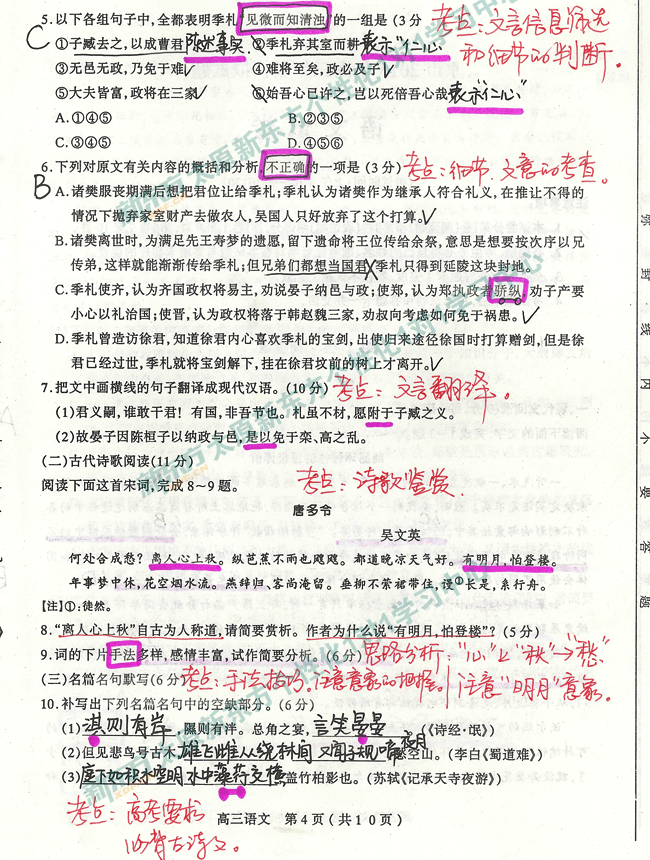 5.以下各组句子中,全都表明季札"见微而知清浊"的一组是(3分 考点:文言信息筛选
C ①子臧去之,以成曹君 陈述事实 ②季札弃其室而耕 表示"仁心" 和细节的判断。
③无邑无政,乃免于难✓ ④难将至矣,政必及子✓
⑤大夫皆富,政将在三家✓ ⑥始吾心已许之,岂以死倍吾心哉 表示"仁心"
A.①④⑤ B.②③⑤
C.③④⑤ D.④⑤⑥
6.下列对原文有关内容的概括和分析,不正确的一项是(3分) 考点:细节、文意的考查。
B A.诸樊服丧期满后想把君位让给季札;季札认为诸樊作为继承人符合礼义,在推让不得的
情况下抛弃家室财产去做农人,吴国人只好放弃了这个打算。✓
B.诸樊离世时,为满足先王寿梦的遗愿,留下遗命将王位传给余祭,意思是想要按次序以兄
传弟,这样就能渐渐传给季札;但兄弟们都想当国君,季札只得到延陵这块封地。
C.季札使齐,认为齐国政权将易主,劝说晏子纳邑与政;使郑,认为郑执政者骄纵,劝子产要
小心以礼治国;使晋,认为政权将落于韩赵魏三家,劝叔向考虑如何免于祸患。✓
D.季札曾造访徐君,知道徐君内心喜欢季札的宝剑,出使归来途径徐国时打算赠剑,但是徐
君已经过世,季札就将宝剑解下,挂在徐君坟前的树上才离开。✓
7.把文中画横线的句子翻译成现代汉语。(10分) 考点:文言翻译。
(1)君义嗣,谁敢干君!有国,非吾节也。札虽不材,愿附于子臧之义。
(2)故晏子因陈桓子以纳政与邑,是以免于栾、高之乱。
(二)古代诗歌阅读(11分)
阅读下面这首宋词,完成8~9题。 考点:诗歌鉴赏.
唐多令
吴文英
何处合成愁?离人心上秋。纵芭蕉不雨也飕飕。都道晚凉天气好。有明月,怕登楼。
年事梦中休,花空烟水流。燕辞归、客尚淹留。垂柳不萦裙带住,漫①长是,系行舟。
[注]①:徒然。
8."离人心上秋"自古为人称道,请简要赏析。作者为什么说"有明月,怕登楼"?(5分)
9.词的下片手法多样,感情丰富,试作简要分析。(6分) 思路分析:"心"上"秋"→"愁"
(三)名篇名句默写(6分 考点:手法技巧,注意意象的把握。注意"明月"意象。
10.补写出下列名篇名句中的空缺部分。(6分)
(1) 淇则有岸,隰则有泮。总角之宴,言笑晏晏。(《诗经·氓》)
(2)但见悲鸟号古木,雄飞雌从绕林间 又闻子规啼夜月,愁空山。(李白《蜀道难》)
(3)庭下如积水空明,水中藻荇交横,盖竹柏影也。(苏轼《记承天寺夜游》)
考点:高考要求
必背古诗文。
高三语文 第4页(共10页)